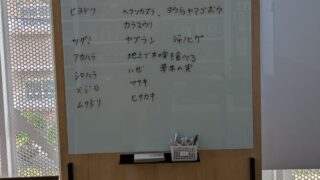 ヒヨドリ ヘクソカズラ、ヨウシュヤマゴボウ
カラスウリ
ツグミ ヤブラン ジャノヒゲ
アカハラ 地上で木の実を食べる
シロハラ ハゼ 草木の実
メジロ マサキ
ムクドリ ヒサカキ